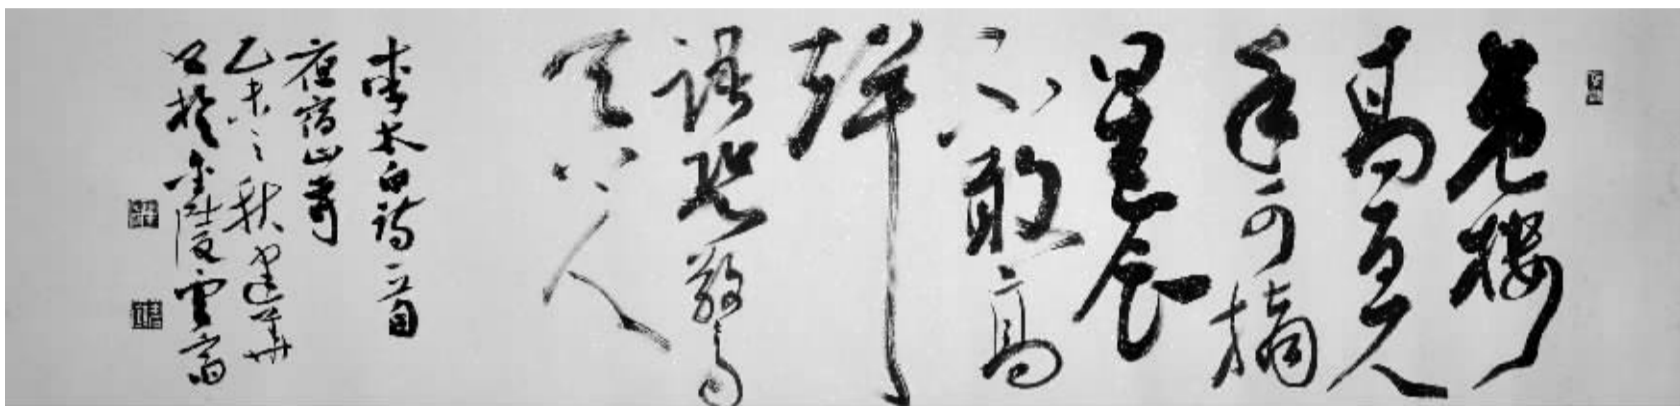 危樓
高百尺
手可摘
星辰
不敢高
聲
語恐驚
天上人
李太白詩一首
夜宿山寺
乙未之秋建華
於金陵雲